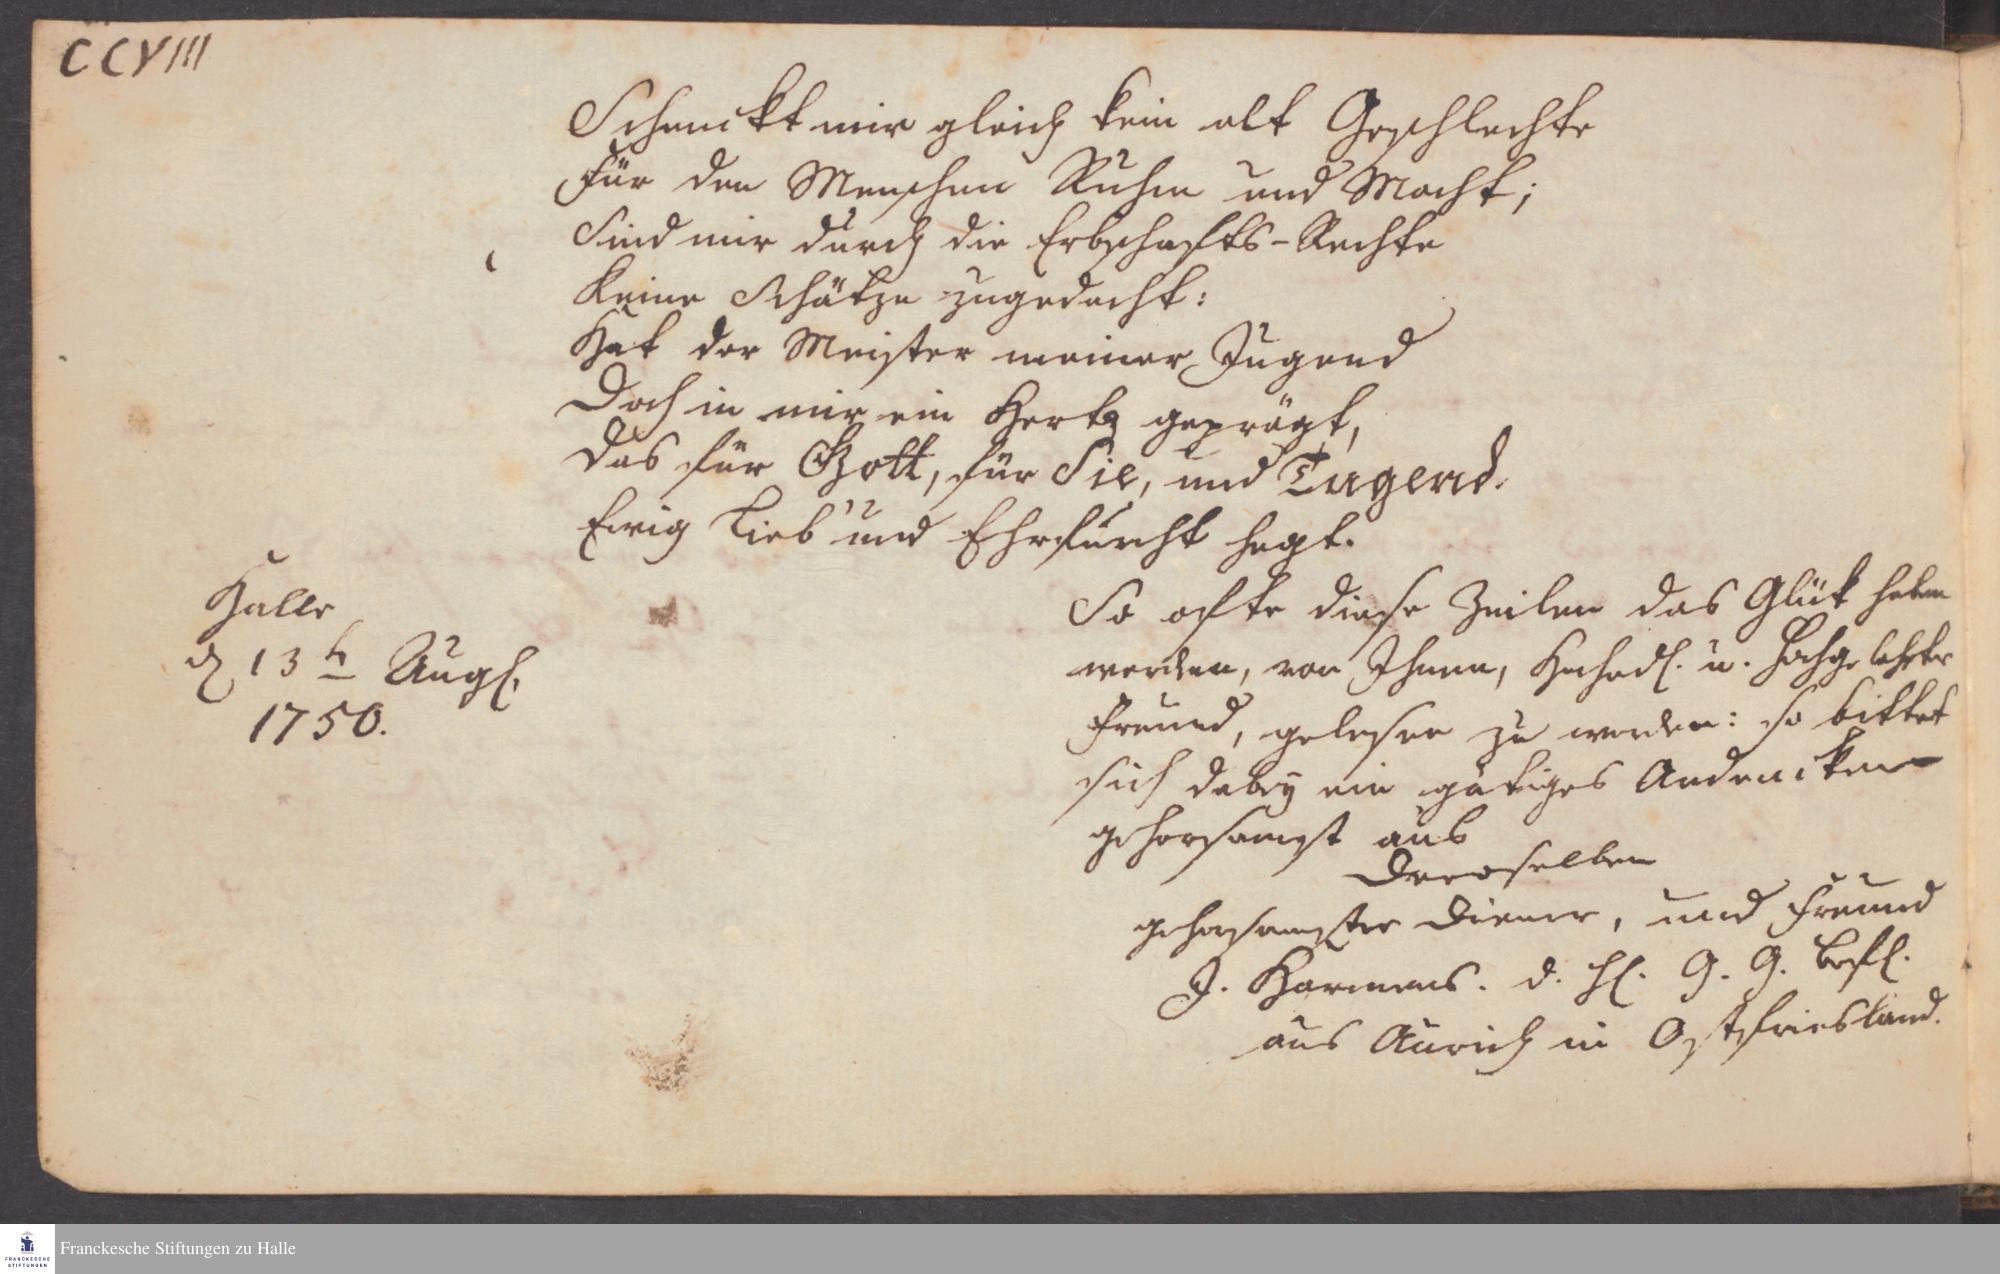 CCVIII
Schenckt mir gleich kein alt Geschlechte
Für den Menschen Ruhm und Macht;
Sind mir durch die Erbschafts-Rechte
Keine Schätze zugedacht:
Hat der Meister meiner Jugend
Doch in mir ein Hertz geprägt,
Das für Gott, für Sie, und Tugend.
Ewig Lieb' und Ehrfurcht hegt.
Halle
d 13 t Aug.
1750.
So ofte diese Zeilen das Glük haben
werden, von Ihnen, Hochedl. u. Hochgelehrter
Freund, gelesen zu werden: so bittet
sich dabey ein gütiges Andencken
gehorsamst aus
Deroselben
gehorsamster Diener, und Freund
J. Harmens. d. H. G. G. Befl.
aus Aurich in Ostfriesland.
Franckesche Stiftungen zu Halle
FRANCKESCHE
STIFTUNGEN